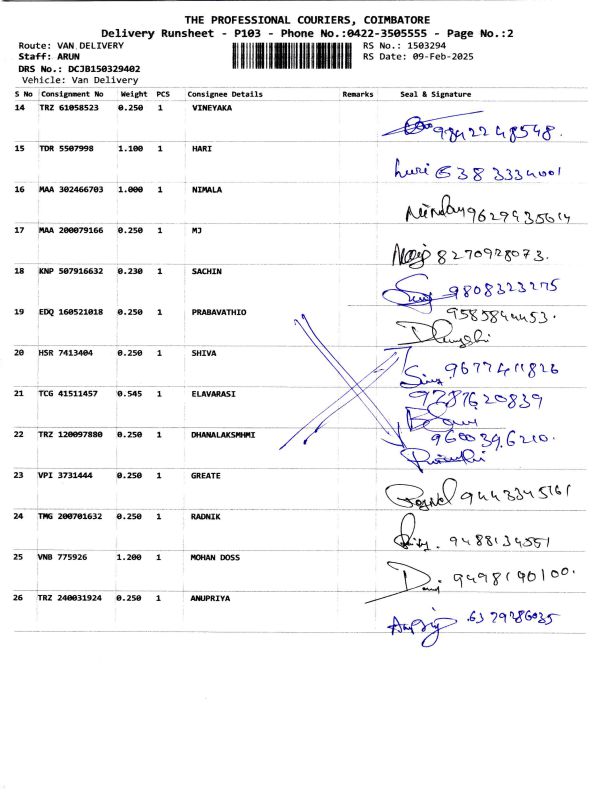 THE PROFESSIONAL COURIERS, COIMBATORE
Delivery Runsheet - P103 - Phone No.:0422-3505555 - Page No.:2
Route: VAN DELIVERY RS No.: 1503294
Staff: ARUN RS Date: 09-Feb-2025
DRS No.: DCJB150329402
Vehicle: Van Delivery
S No Consignment No Weight PCS Consignee Details Remarks Seal & Signature
14 TRZ 61058523 0.250 1 VINEYAKA
9842248548.
15 TDR 5507998 1.100 1 HARI
hari 6383334001
16 MAA 302466703 1.000 1 NIMALA
9629935614
17 MAA 200079166 0.250 1 MJ
8270928073.
18 KNP 507916632 0.230 1 SACHIN
9808323275
19 EDQ 160521018 0.250 1 PRABAVATHIO
9585844453.
20 HSR 7413404 0.250 1 SHIVA
9677411826
21 TCG 41511457 0.545 1 ELAVARASI
9287620839
22 TRZ 120097880 0.250 1 DHANALAKSMHMI
9600396210.
23 VPI 3731444 0.250 1 GREATE
9443345161
24 TMG 200701632 0.250 1 RADNIK
9488134551
25 VNB 775926 1.200 1 MOHAN DOSS
9498190100.
26 TRZ 240031924 0.250 1 ANUPRIYA
6379286035